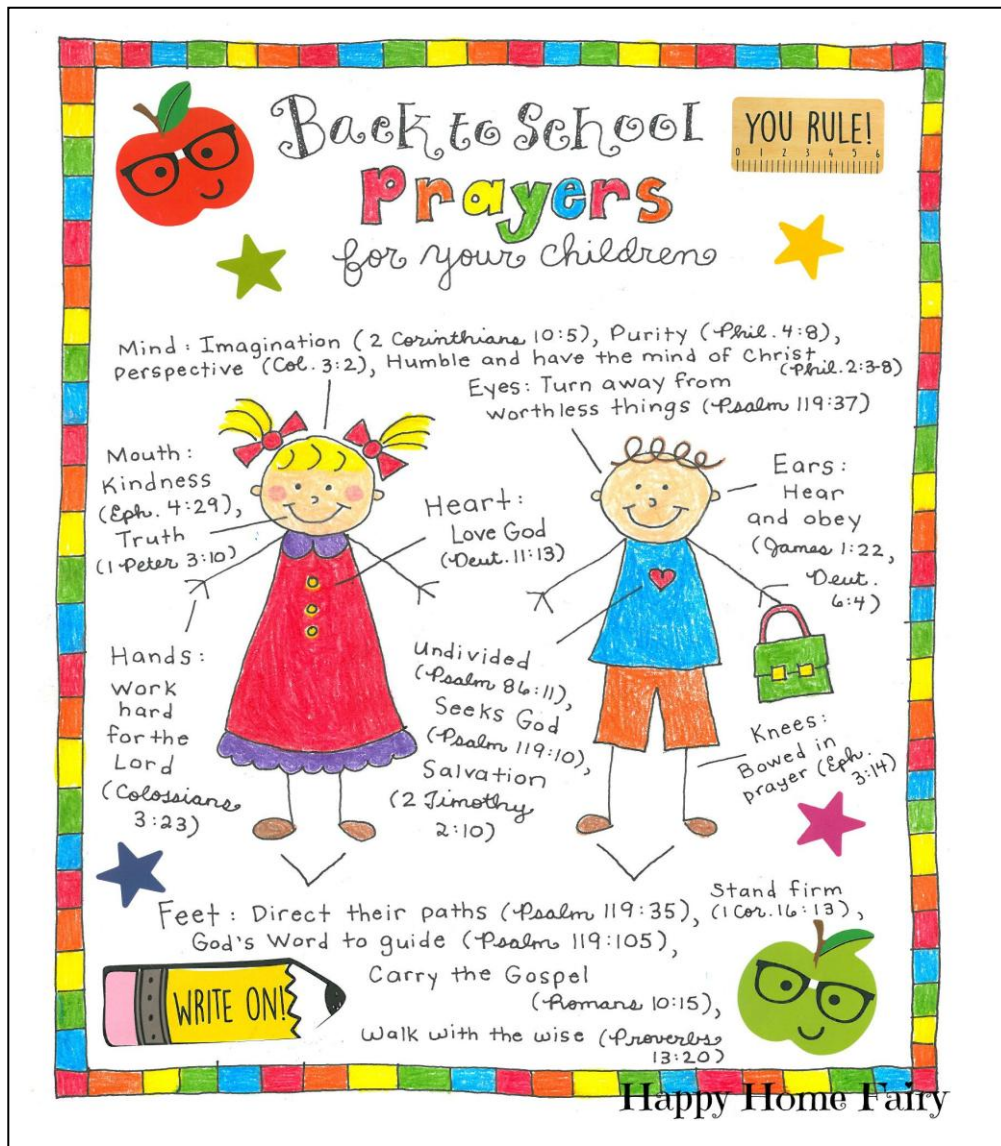 Back to School
YOU RULE!
0 1 2 3 4 5 6
Prayers
for your children
Mind: Imagination (2 Corinthians 10:5), Purity (Phil. 4:8),
Perspective (Col. 3:2), Humble and have the mind of Christ
(Phil. 2:3-8)
Eyes: Turn away from
worthless things (Psalm 119:37)
Mouth:
Kindness
(Eph. 4:29),
Truth
(1 Peter 3:10)
Heart:
Love God
(Deut. 11:13)
Ears:
Hear
and obey
(James 1:22,
Deut.
6:4)
Hands:
work
hard
for the
Lord
(Colossians
3:23)
Undivided
(Psalm 86:11),
Seeks God
(Psalm 119:10),
Salvation
(2 Timothy
2:10)
Knees:
Bowed in
prayer (Eph.
3:14)
Feet: Direct their paths (Psalm 119:35),
Stand firm
(1 Cor. 16:13),
God's Word to guide (Psalm 119:105),
Carry the Gospel
(Romans 10:15),
Walk with the wise (Proverbs
13:20)
WRITE ON!
Happy Home Fairy